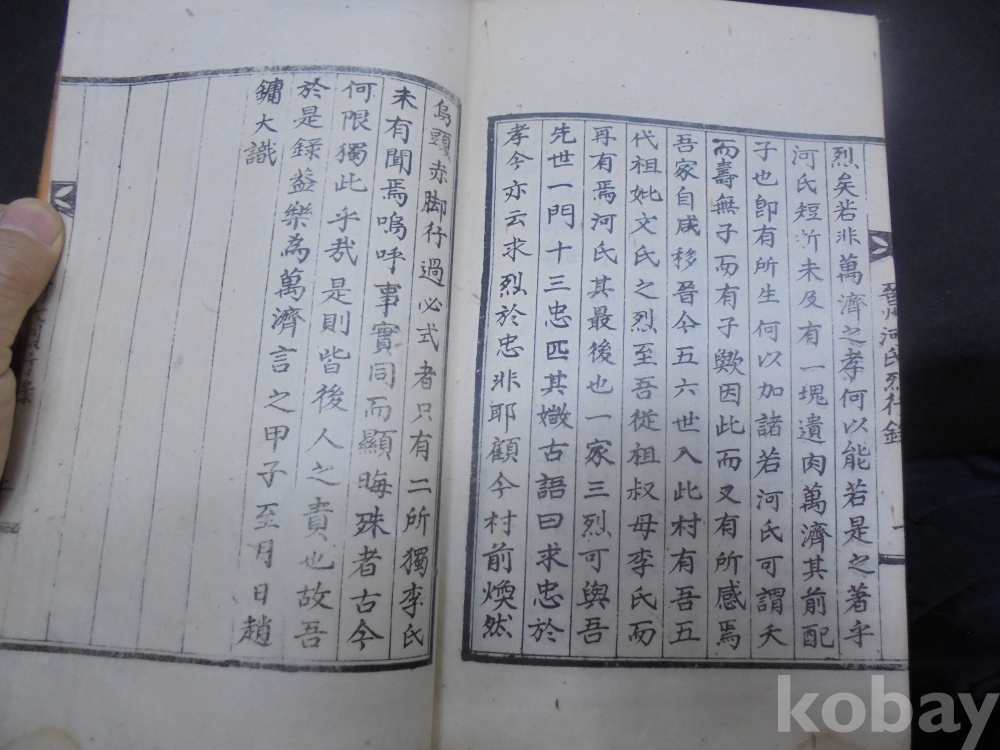 晉州河氏烈行錄
一
烈矣若非萬濟之孝何以能若是之著乎
河氏短所未及有一塊遺肉萬濟其前配
子也卽有所生何以加諸若河氏可謂夭
而壽無子而有子歟因此而又有所感焉
吾家自咸移晉今五六世入此村有吾五
代祖妣文氏之烈至吾從祖叔母李氏而
再有焉河氏其最後也一家三烈可與吾
先世一門十三忠匹其媺古語曰求忠於
孝今亦云求烈於忠非耶顧今村前煥然
烏頭赤脚行過必式者只有二所獨李氏
未有聞焉嗚呼事實同而顯晦殊者古今
何限獨此乎哉是則皆後人之責也故吾
於是錄益樂為萬濟言之甲子至月日趙
鏞大識
kobay